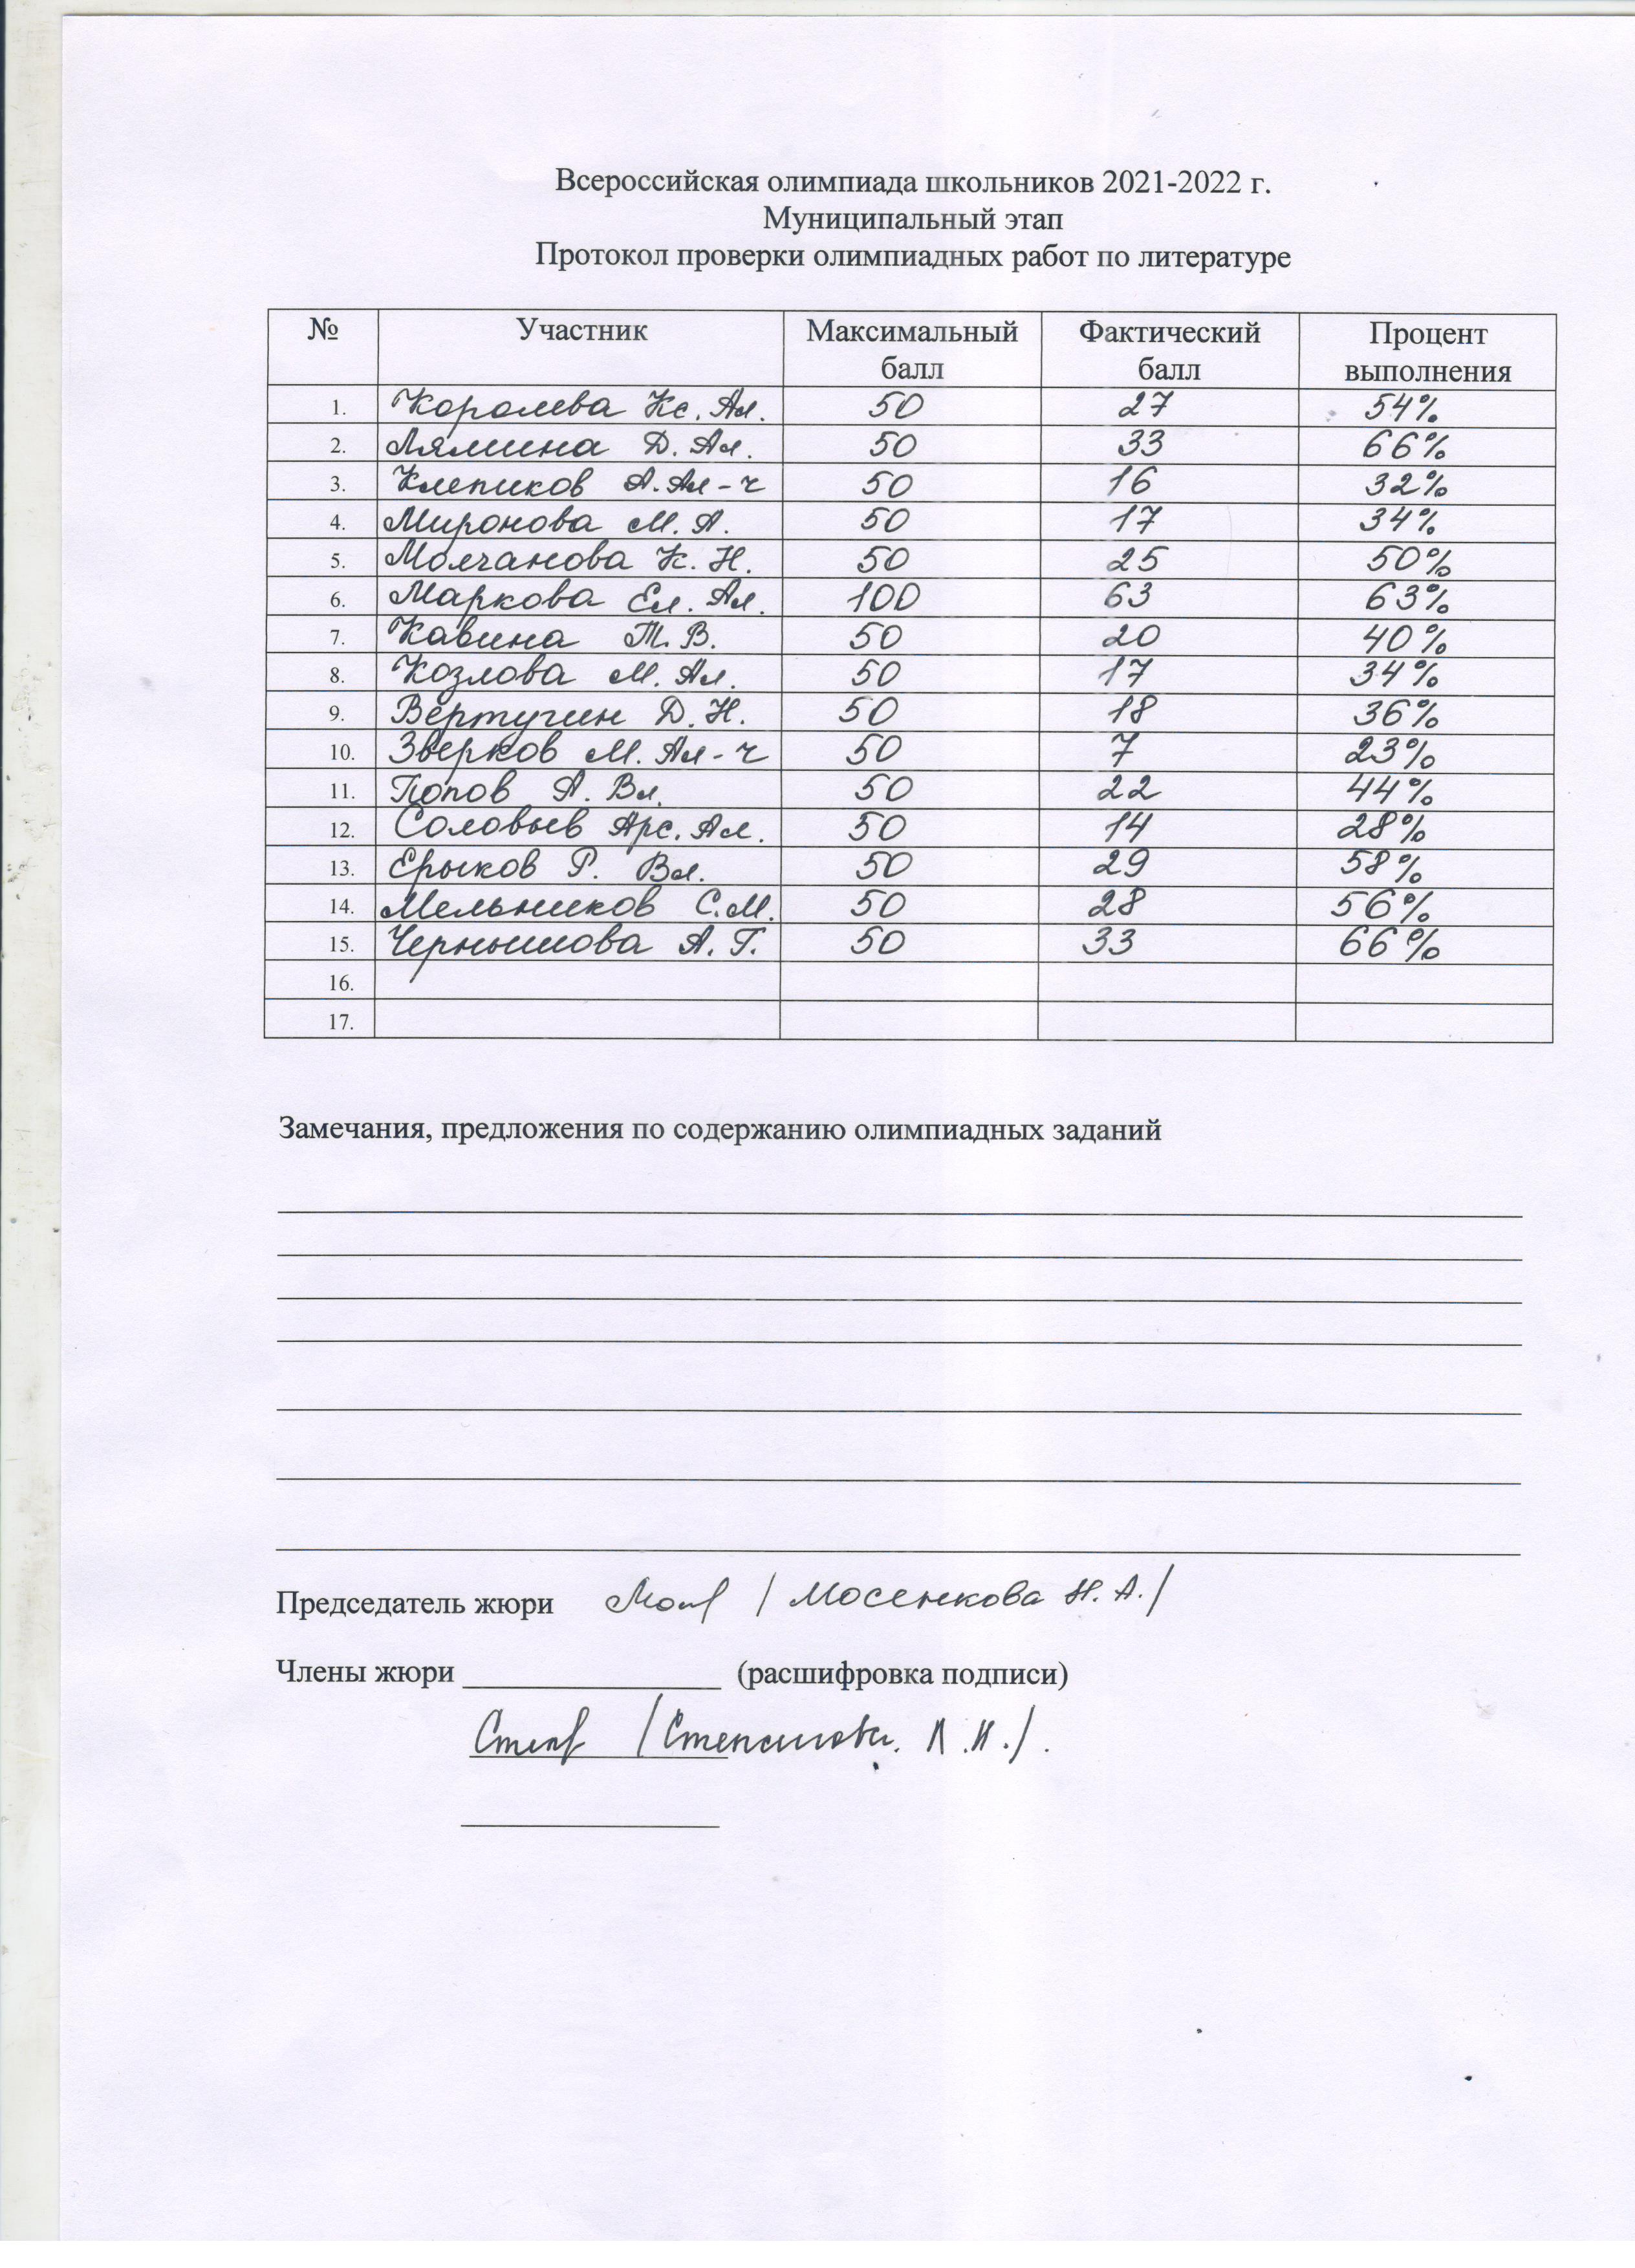 Всероссийская олимпиада школьников 2021-2022 г.
Муниципальный этап
Протокол проверки олимпиадных работ по литературе
№ Участник Максимальный балл Фактический балл Процент выполнения
1. Королева Кс. Ал. 50 27 54%
2. Лямина Д. Ал. 50 33 66%
3. Клепиков А. Ал-ч 50 16 32%
4. Миронова М. А. 50 17 34%
5. Молчанова К. Н. 50 25 50%
6. Маркова Ел. Ал. 100 63 63%
7. Кавина Т. В. 50 20 40%
8. Козлова М. Ал. 50 17 34%
9. Вертугин Д. Н. 50 18 36%
10. Зверков М. Ал-ч 50 7 23%
11. Попов А. Вл. 50 22 44%
12. Соловьев Арс. Ал. 50 14 28%
13. Ерыков Р. Вл. 50 29 58%
14. Мельников С. М. 50 28 56%
15. Чернышова А. Г. 50 33 66%
16.
17.
Замечания, предложения по содержанию олимпиадных заданий
Председатель жюри / Мосенкова Н. А. /
Члены жюри (расшифровка подписи)
/ Степанова Л. И. / .